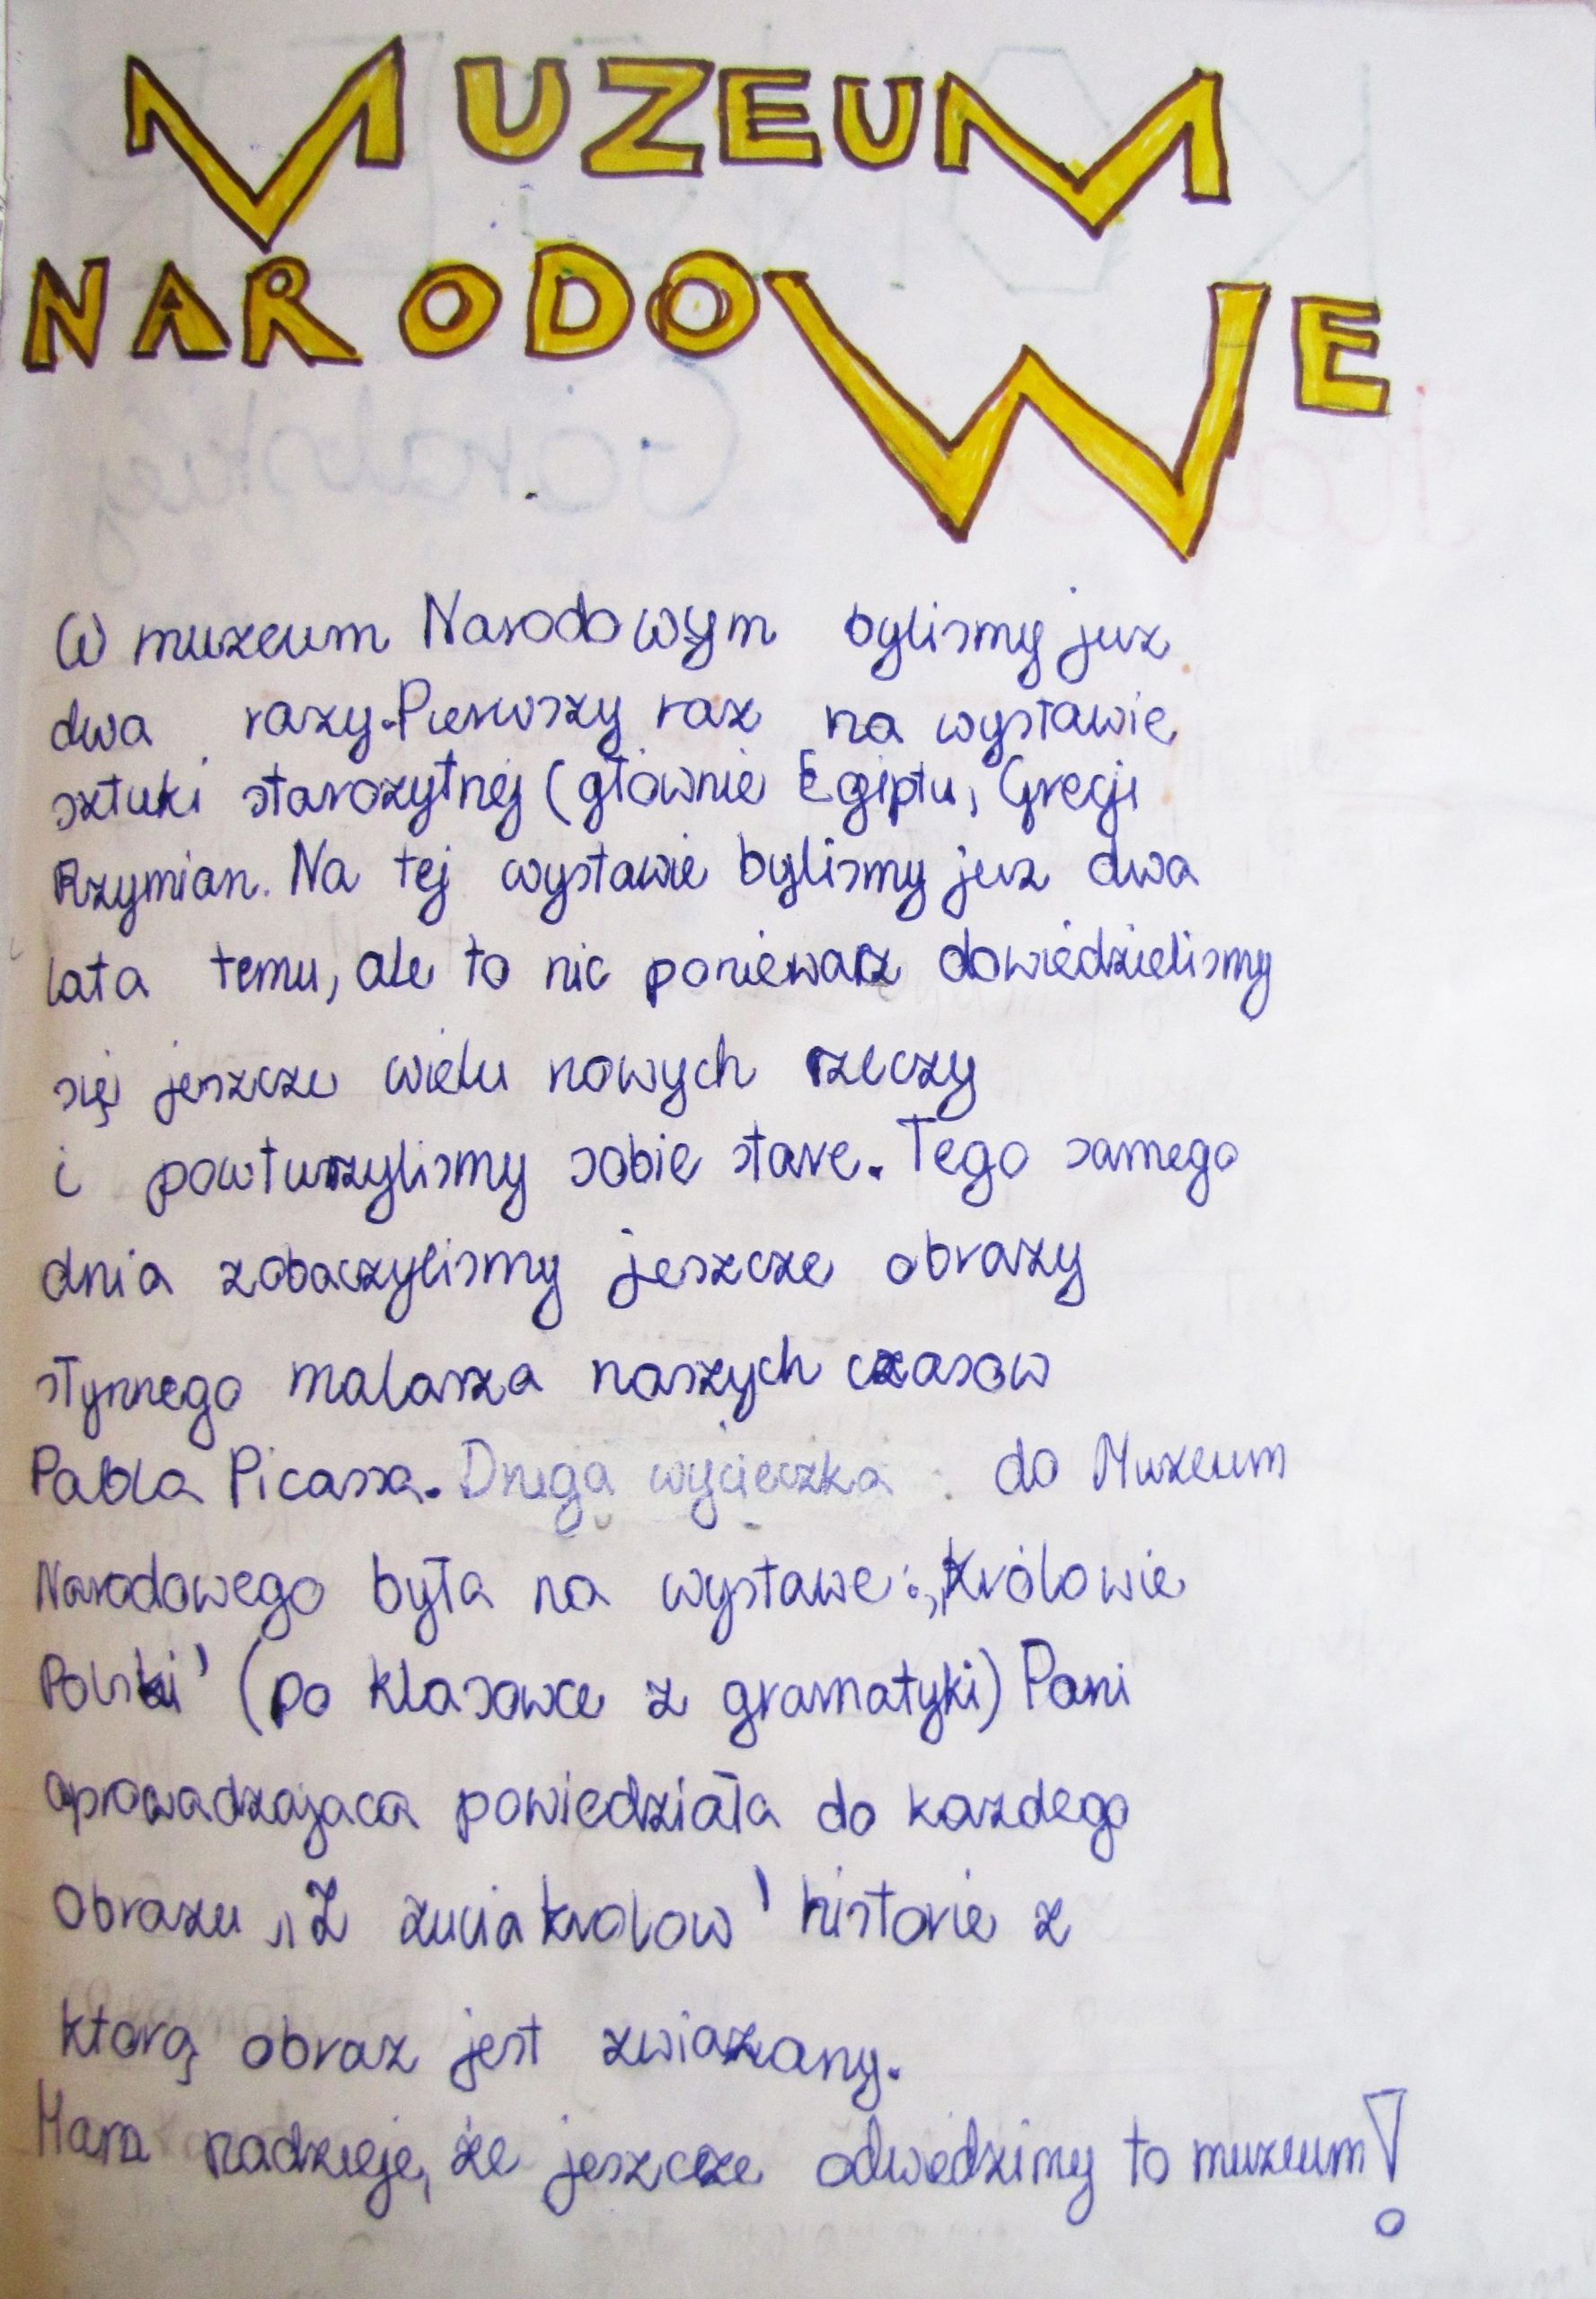 MUZEUM
NARODOWE
W muzeum Narodowym bylismy juz
dwa razy. Pierwszy raz na wystawie
sztuki starozytnej (głownie Egiptu, Grecji
Rzymian. Na tej wystawie bylismy juz dwa
lata temu, ale to nic poniewaz dowiedzielismy
się jeszcze wielu nowych rzeczy
i powturzylismy sobie stare. Tego samego
dnia zobaczylismy jeszcze obrazy
słynnego malarza naszych czasow
Pabla Picassa. Druga wycieczka do Muzeum
Narodowego była na wystawe: „Królowie
Polski' (po klasowce z gramatyki) Pani
oprowadzajaca powiedziała do kazdego
Obrazu „Z zucia krolow' historie z
ktorą obraz jest zwiazany.
Mam nadzieje, że jeszcze odwiedzimy to muzeum!